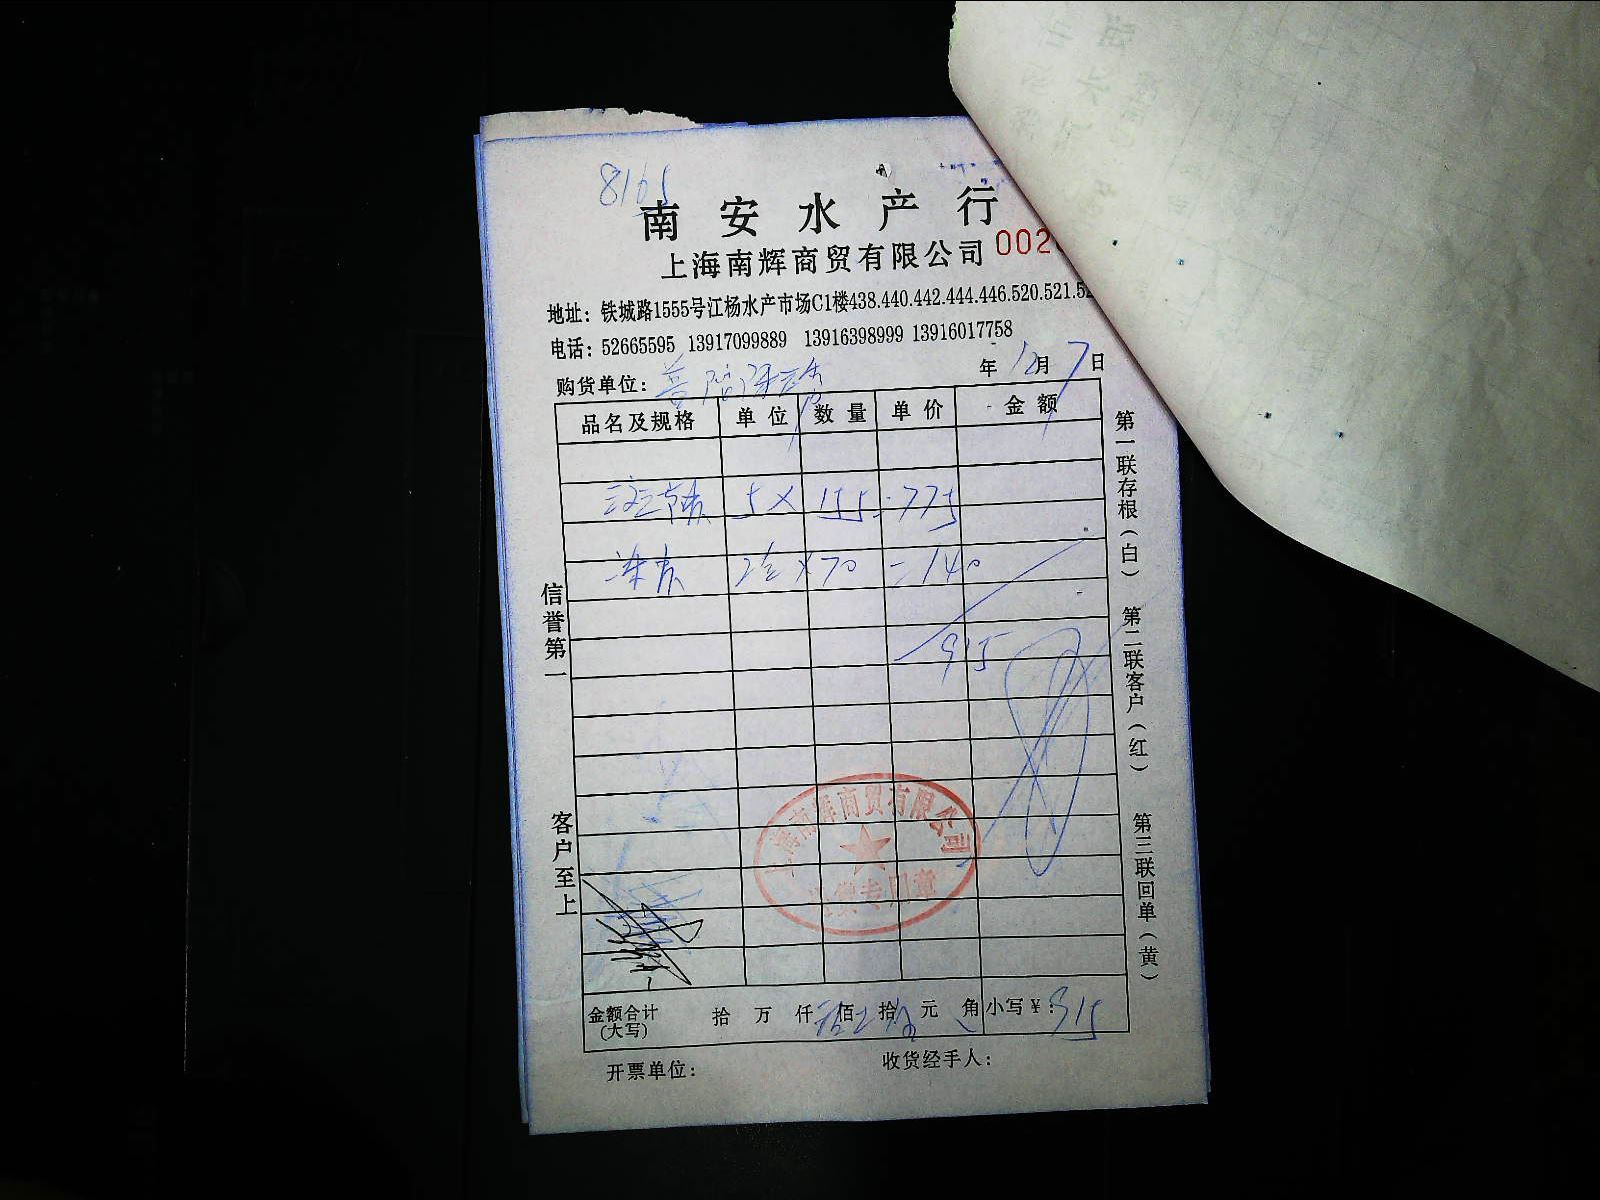 8165
南安水产行
上海南辉商贸有限公司 002
地址：铁城路1555号江杨水产市场C1楼438.440.442.444.446.520.521.52
电话：52665595 13917099889 13916398999 13916017758
购货单位： 年 12 月 7 日
品名及规格 单位 数量 单价 金额
5 × 155 = 775
2 × 70 = 140
915
信誉第一
客户至上
第一联存根（白）
第二联客户（红）
第三联回单（黄）
上海南辉商贸有限公司
专用章
金额合计(大写) 拾 万 仟 佰 拾 元 角 小写¥：915
开票单位： 收货经手人：